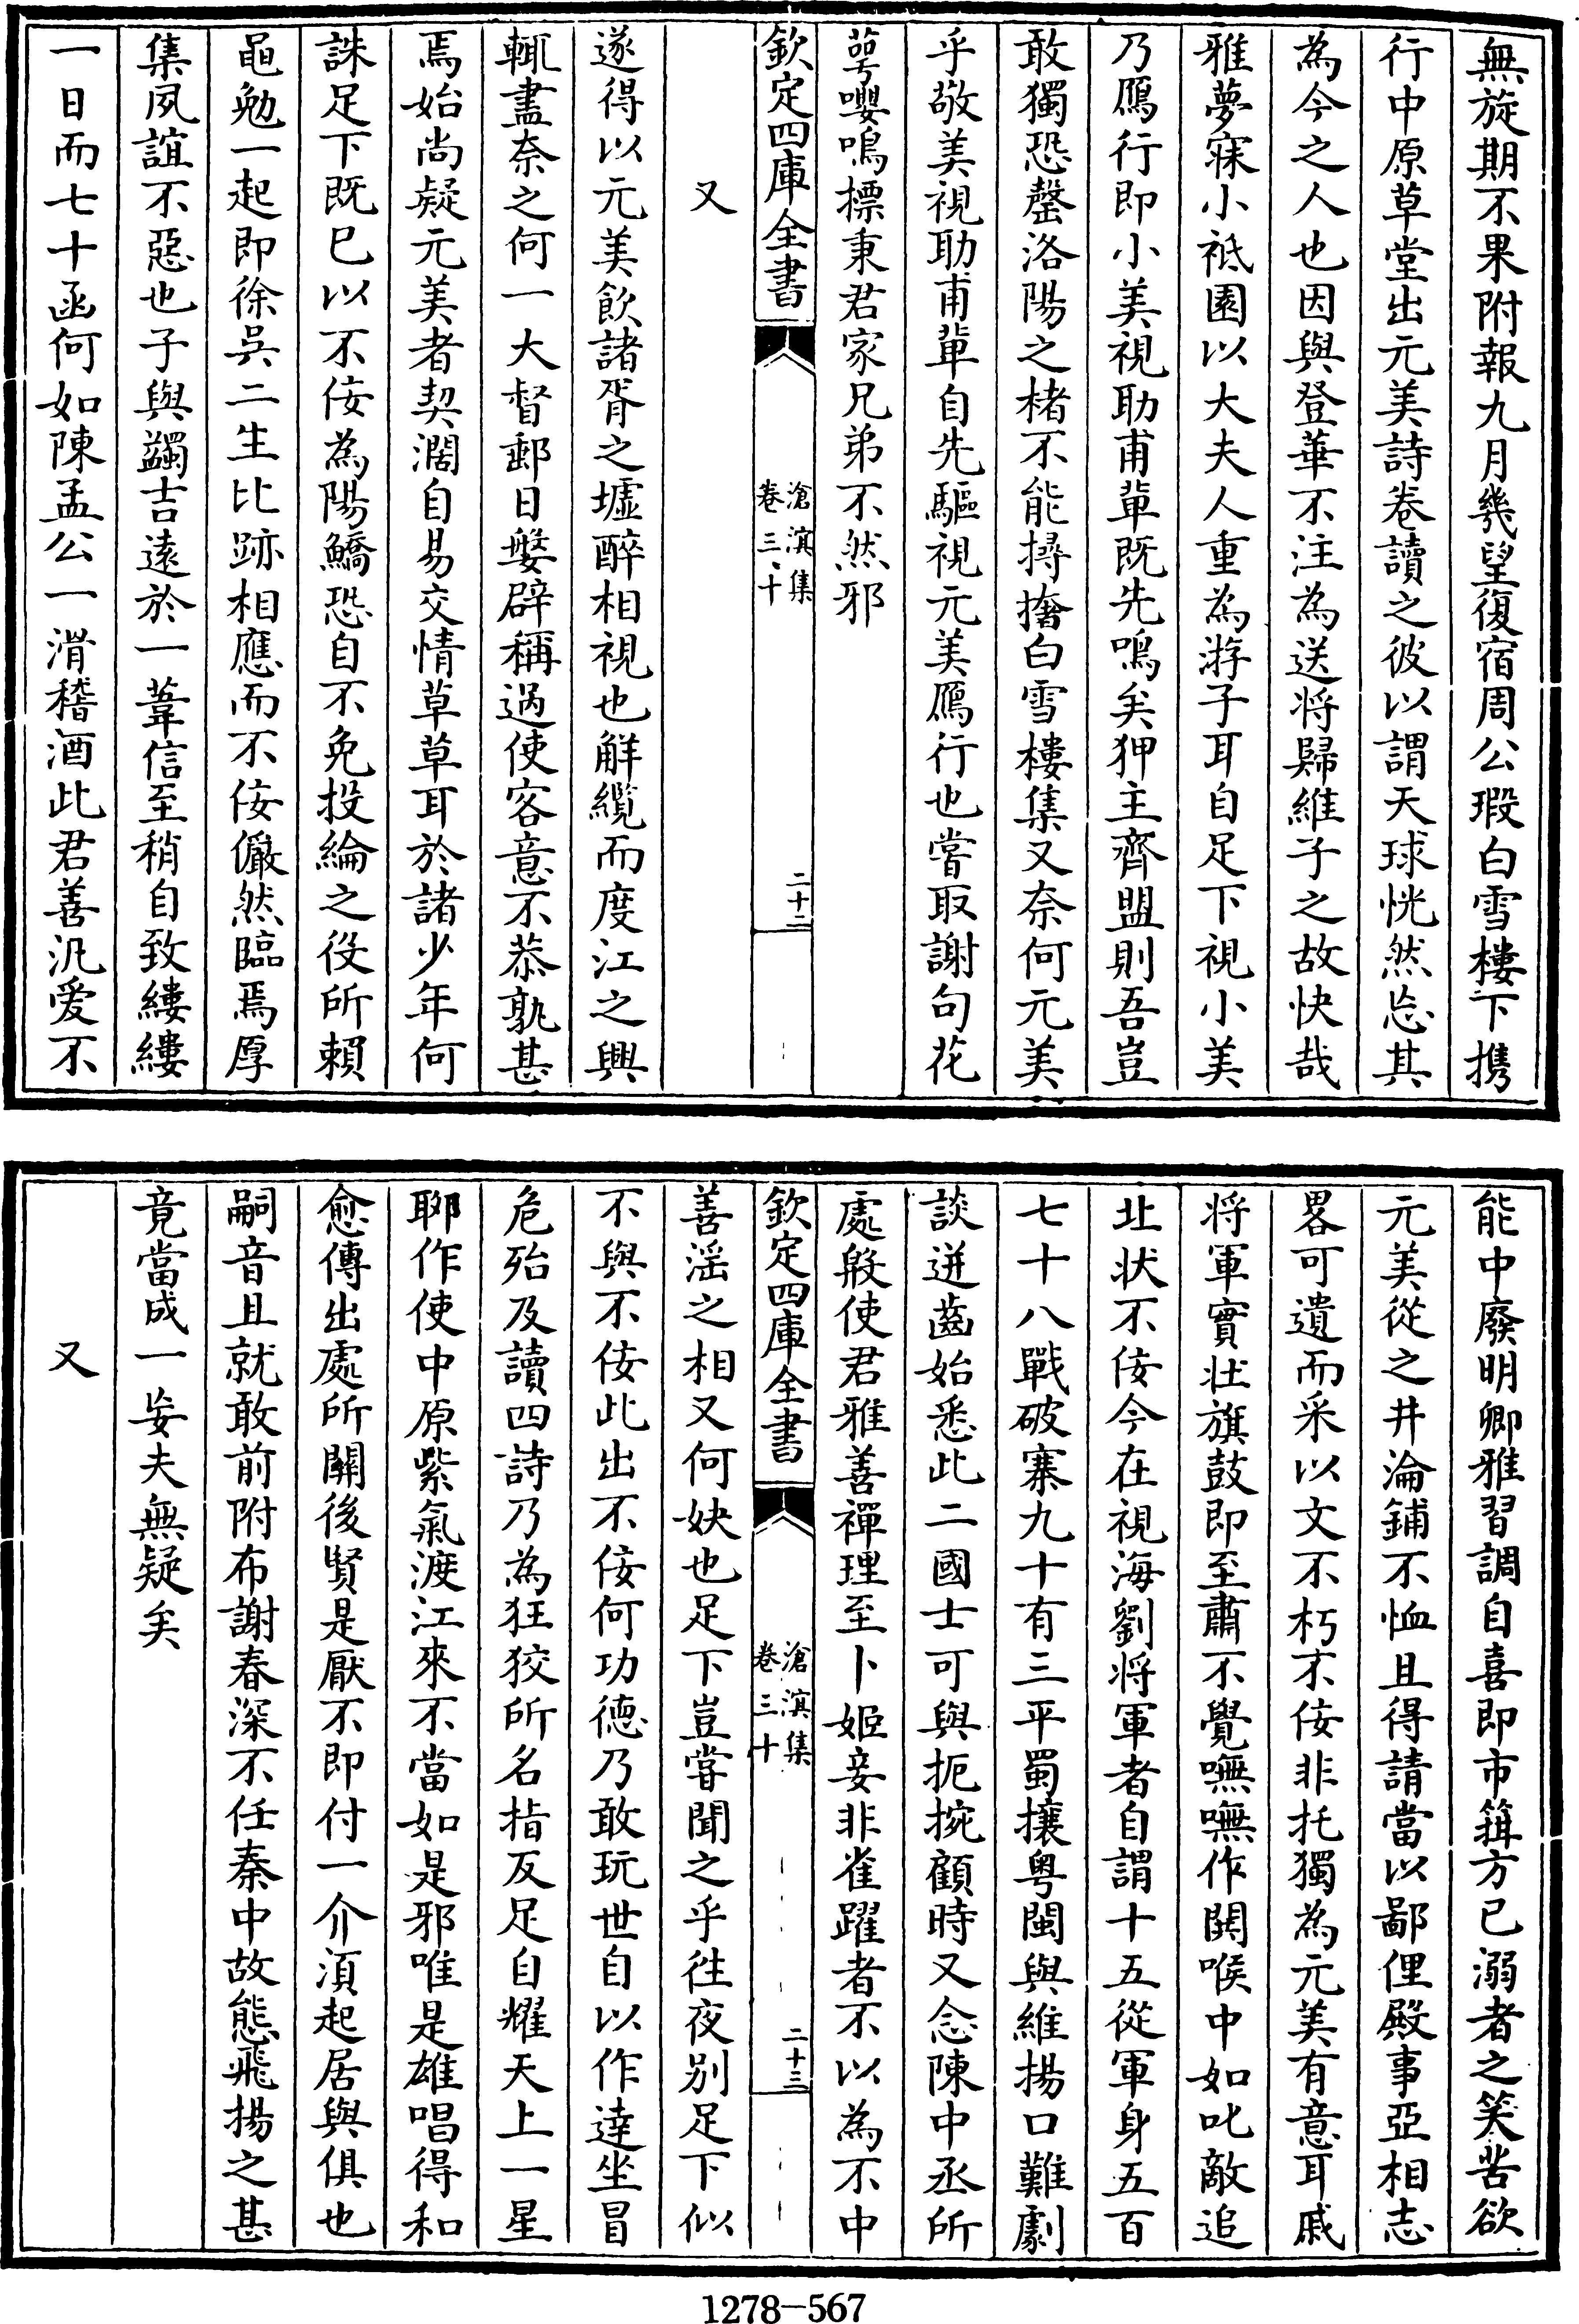 無旋期不果附報九月幾望復宿周公瑕白雪樓下携
行中原草堂出元美詩卷讀之彼以謂天球恍然忘其
為今之人也因與登華不注為送将歸維子之故快哉
雅夢寐小祇園以大夫人重為游子耳自足下視小美
乃鴈行即小美視助甫軰既先鳴矣狎主齊盟則吾豈
敢獨恐罄洛陽之楮不能撏撦白雪樓集又奈何元美
乎敬美視助甫軰自先驅視元美鴈行也嘗取謝句花
萼嚶鳴摽秉君家兄弟不然邪
欽定四庫全書
滄溟集
卷三十
二十二
又
遂得以元美飲諸胥之墟醉相視也觧纜而度江之興
輒盡奈之何一大督郵日媻辟稱過使客意不恭孰甚
焉始尚疑元美者契濶自易交情草草耳於諸少年何
誅足下既已以不佞為陽鱎恐自不免投綸之役所賴
黽勉一起即徐吳二生比跡相應而不佞儼然臨焉厚
集夙誼不惡也子與蠲吉遠於一葦信至稍自致縷縷
一日而七十函何如陳孟公一滑稽酒此君善汎爱不
能中廢明卿雅習調自喜即市箝方已溺者之笑苦欲
元美從之井淪鋪不恤且得請當以鄙俚殿事亞相志
畧可遺而采以文不朽不佞非托獨為元美有意耳戚
将軍實壯旗鼓即至肅不覺嘸嘸作関喉中如叱敵追
北状不佞今在視海劉将軍者自謂十五從軍身五百
七十八戰破寨九十有三平蜀攘粤閩與維揚口難劇
談迸齒始悉此二國士可與扼捥顧時又念陳中丞所
處殽使君雅善禪理至卜姬妾非雀躍者不以為不中
欽定四庫全書
滄溟集
卷三十
二十三
善滛之相又何妜也足下豈甞聞之乎徃夜别足下似
不與不佞此出不佞何功徳乃敢玩世自以作達坐冒
危殆及讀四詩乃為狂狡所名指反足自耀天上一星
聊作使中原紫氣渡江來不當如是邪唯是雄唱得和
愈傳出處所關後賢是厭不即付一介湏起居與俱也
嗣音且就敢前附布謝春深不任秦中故態飛揚之甚
竟當成一妄夫無疑矣
又
1278-567